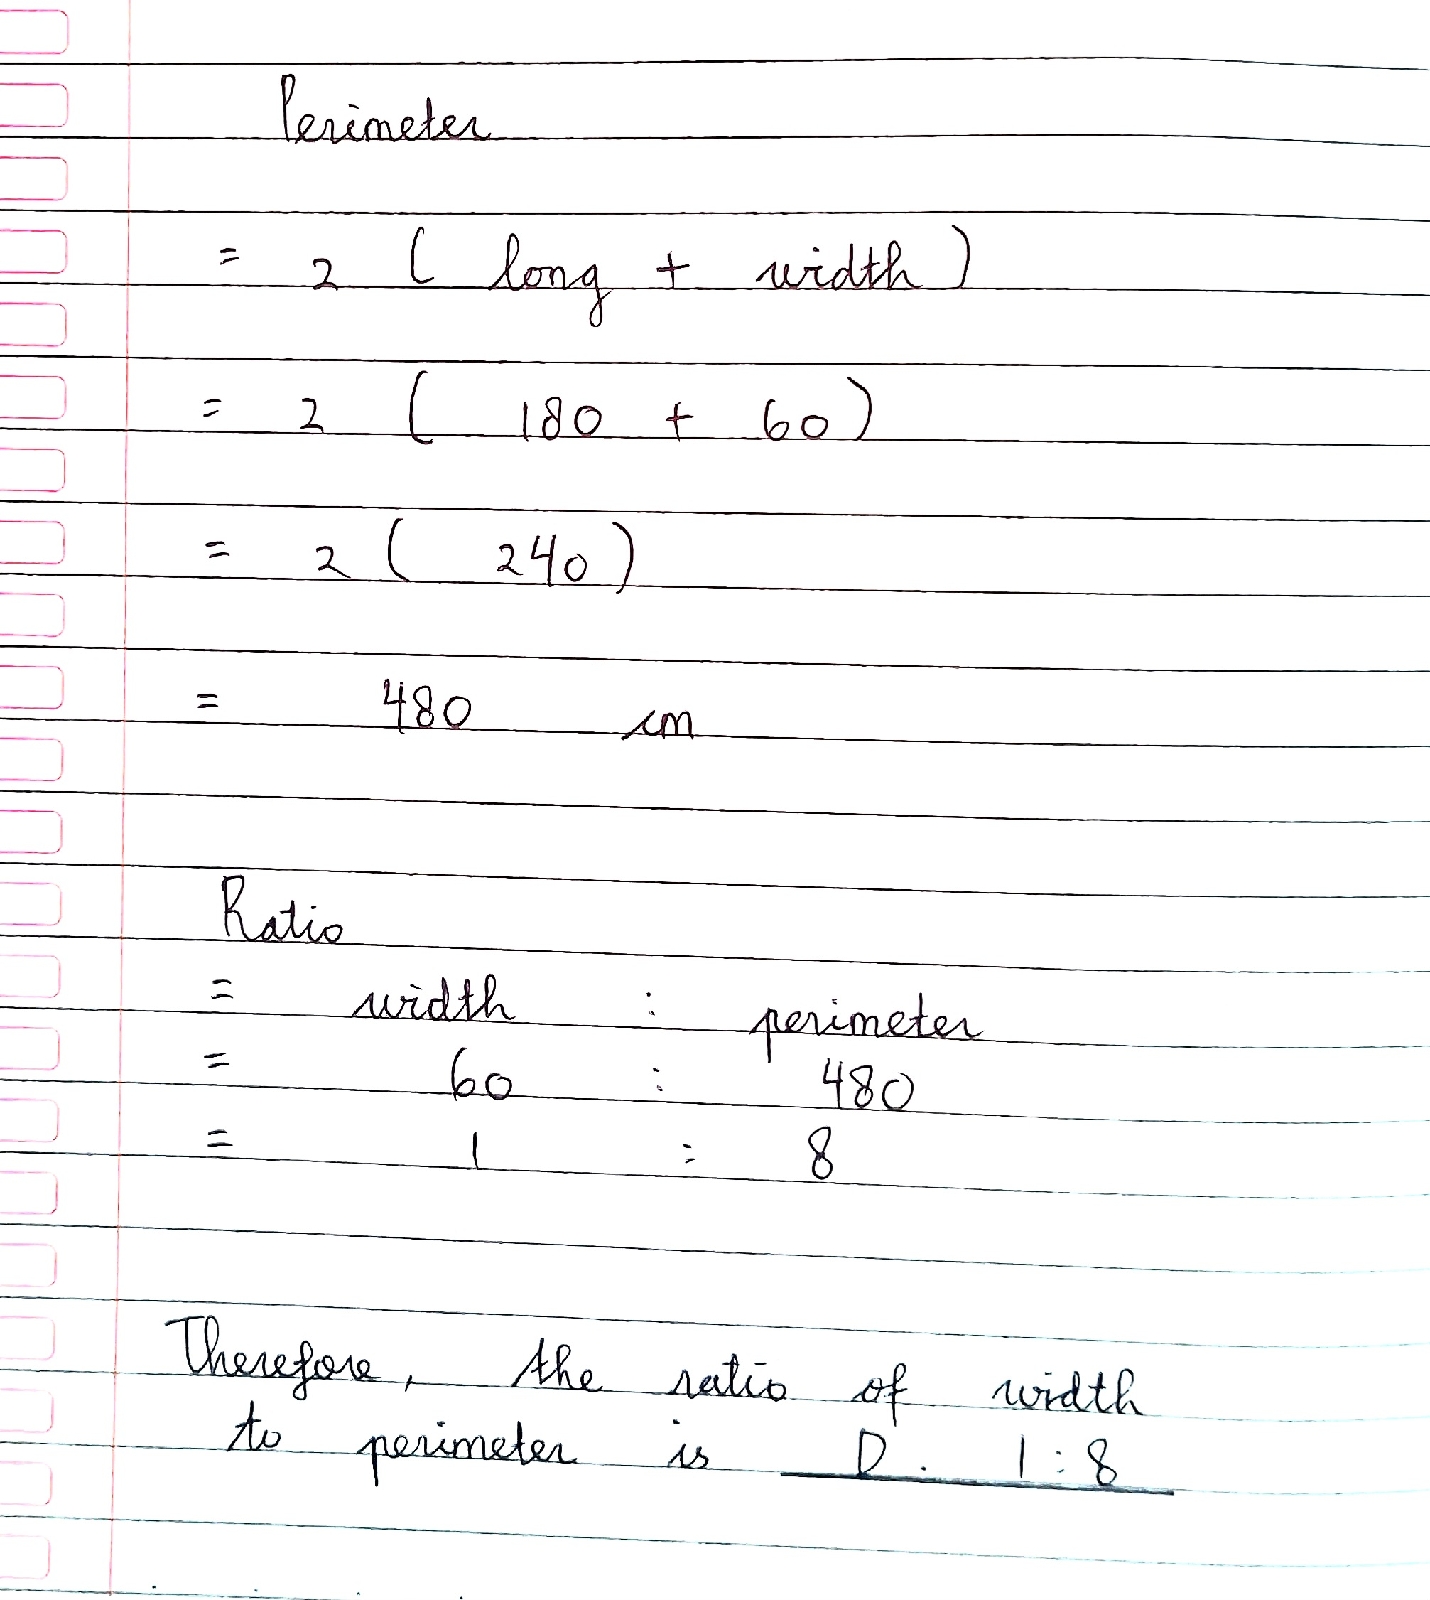 Perimeter
= 2 ( long + width )
= 2 ( 180 + 60 )
= 2 ( 240 )
= 480 cm
Ratio
= width : perimeter
= 60 : 480
= 1 : 8
Therefore, the ratio of width
to perimeter is D. 1:8